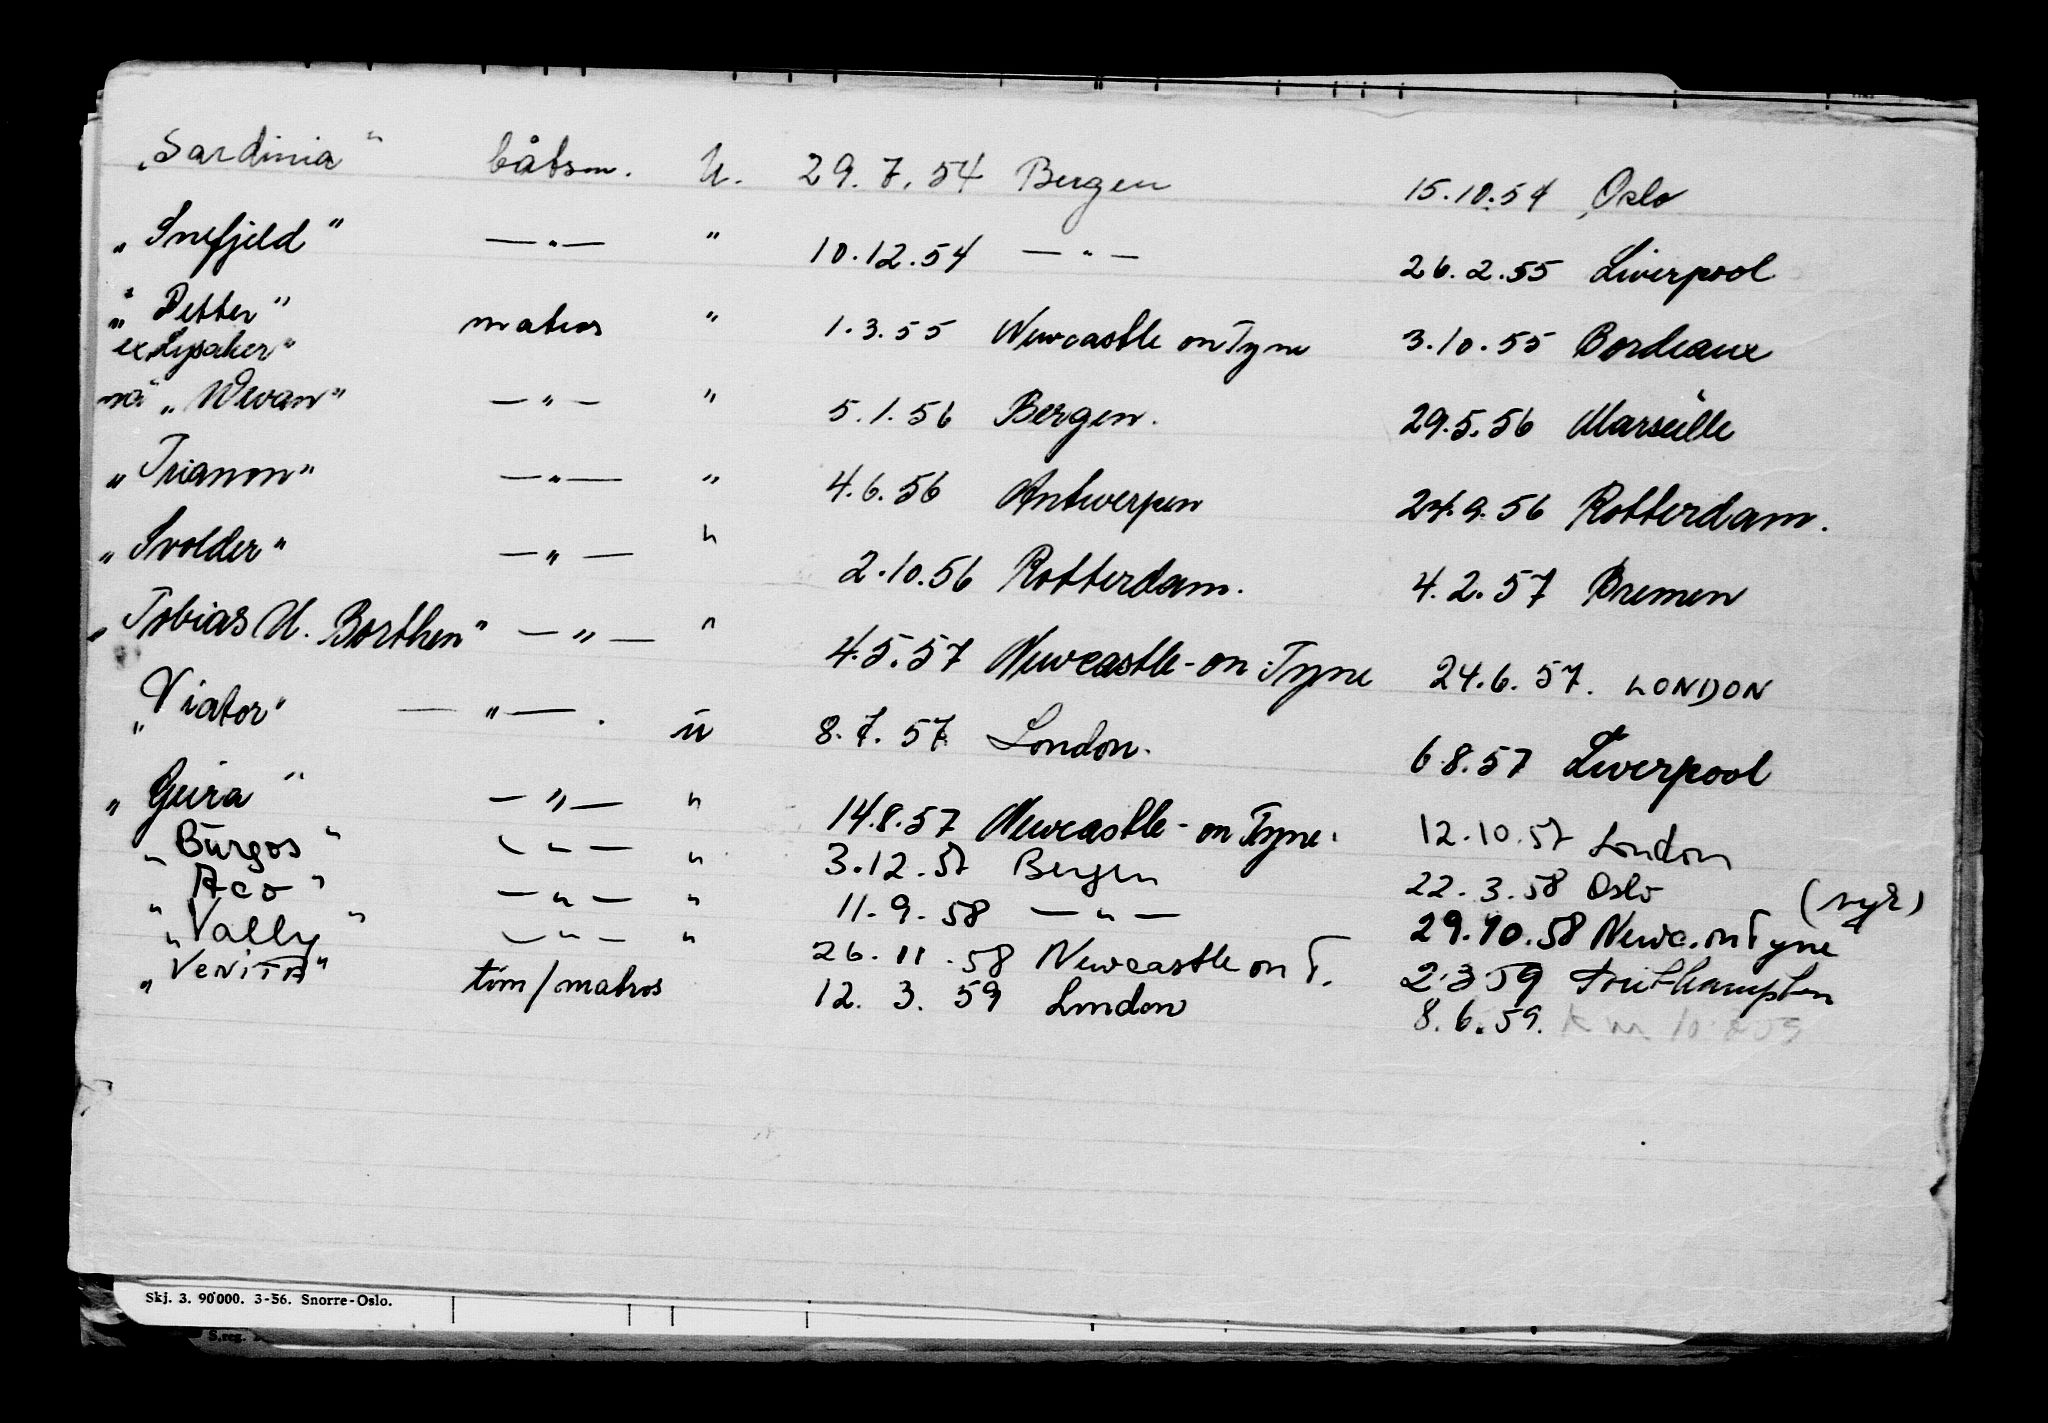 „Sardinia" båtsm. U. 29.7.54 Bergen 15.10.54 Oslo
„Snefjeld" —"— " 10.12.54 —"— 26.2.55 Liverpool
„Petter" matros " 1.3.55 Newcastle on Tyne 3.10.55 Bordeaux
ex „Lysaker"
nå „Wivan" —"— " 5.1.56 Bergen. 29.5.56 Marseille
„Trianon" —"— " 4.6.56 Antwerpen 24.9.56 Rotterdam.
„Svolder" —"— " 2.10.56 Rotterdam. 4.2.57 Bremen
„Tobias U. Borthen" —"— " 4.5.57 Newcastle-on-Tyne 24.6.57. LONDON
„Viator" —"—. u 8.7.57 London. 6.8.57 Liverpool
„Geira" —"— " 14.8.57 Newcastle-on Tyne. 12.10.57 London
„Burgos" —"— " 3.12.57 Bergen 22.3.58 Oslo (syk)
„Aco" —"— " 11.9.58 —"— 29.10.58 Newc. on Tyne
„Vally" —"— " 26.11.58 Newcastle on T. 2.3.59 Southampton
„VENITA" töm/matros 12.3.59 London 8.6.59.
Skj. 3. 90 000. 3-56. Snorre-Oslo.
S.reg.